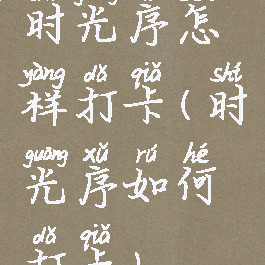 时光序怎
yàng dǎ qiǎ shí
样打卡(时
guāng xù rú hé
光序如何
dǎ qiǎ
打卡)